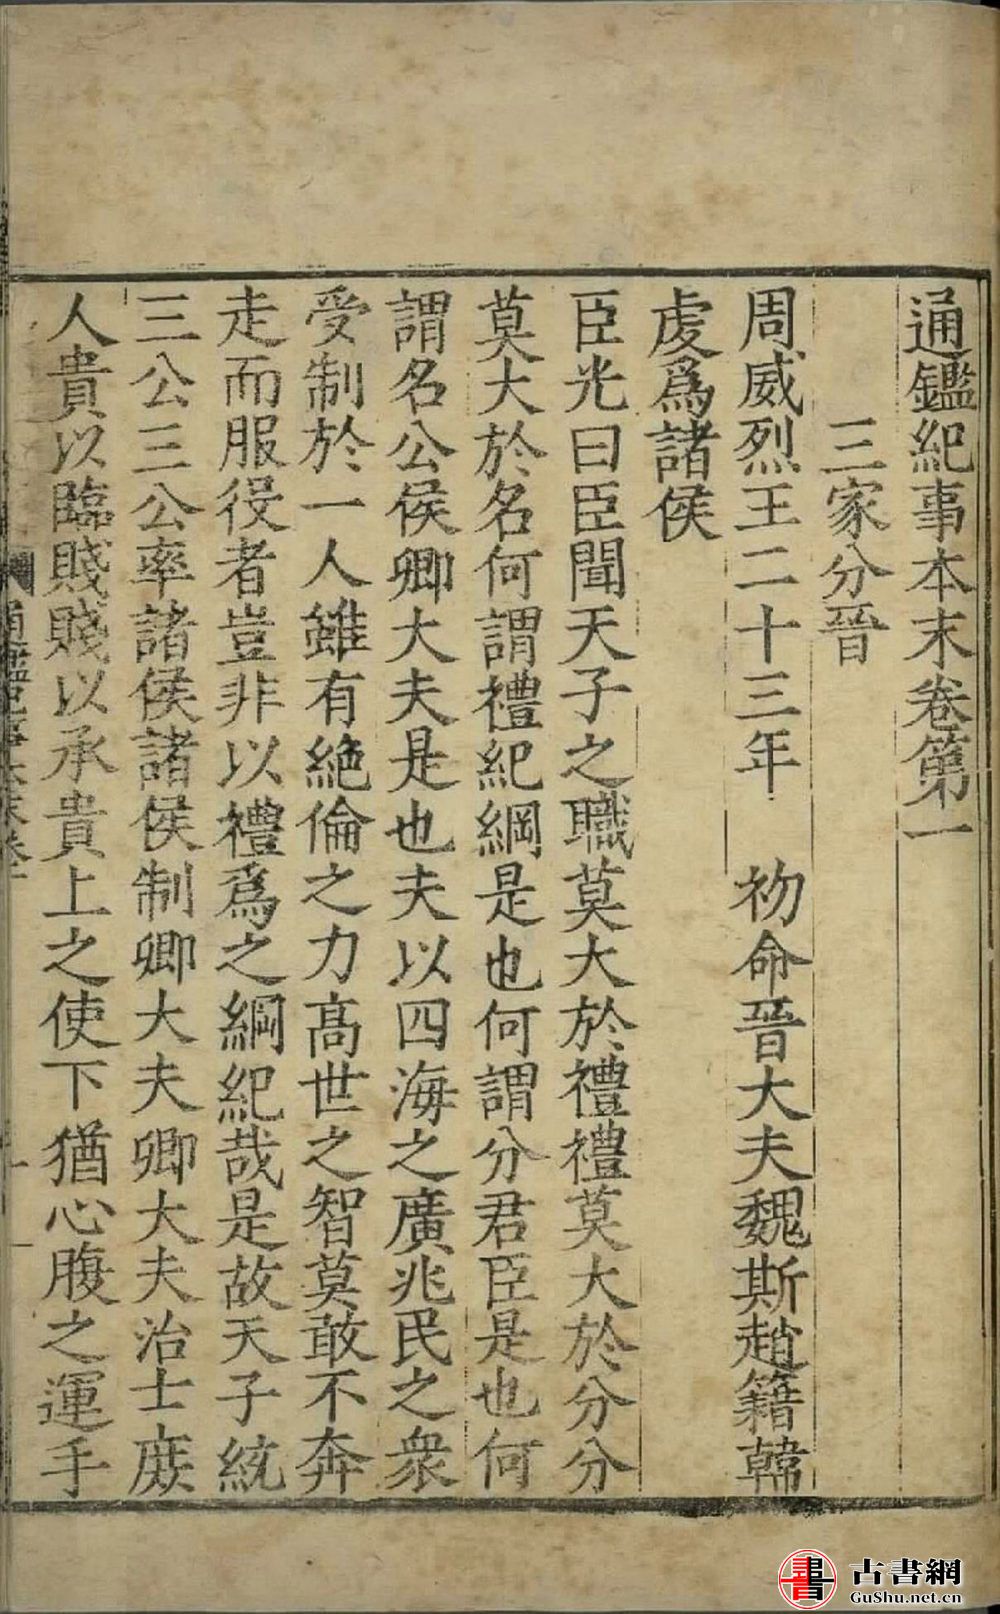 通鑑紀事本末卷第一
三家分晉
周威烈王二十三年 初命晉大夫魏斯趙籍韓
虔爲諸侯
臣光曰臣聞天子之職莫大於禮禮莫大於分分
莫大於名何謂禮紀綱是也何謂分君臣是也何
謂名公侯卿大夫是也夫以四海之廣兆民之衆
受制於一人雖有絶倫之力髙世之智莫敢不奔
走而服役者豈非以禮爲之綱紀哉是故天子統
三公三公率諸侯諸侯制卿大夫卿大夫治士庻
人貴以臨賤賤以承貴上之使下猶心腹之運手
古書網
GuShu.net.cn